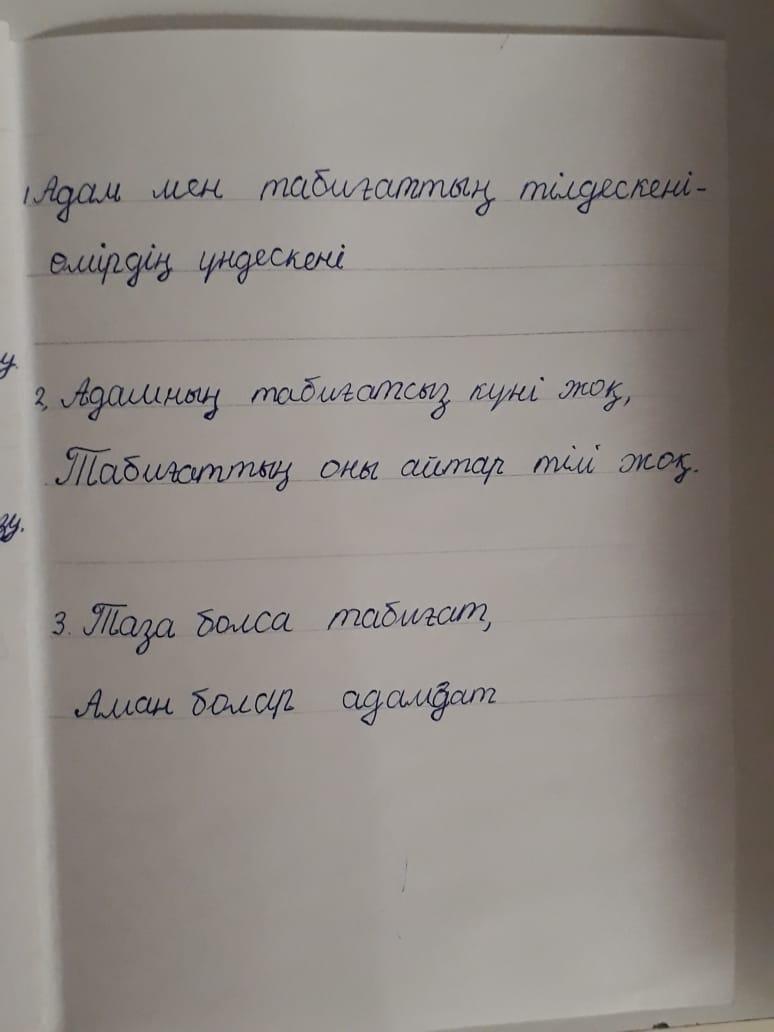 1. Адам мен табиғаттың тілдескені-
өмірдің үндескені
2, Адамның табиғатсыз күні жоқ,
Табиғаттың оны айтар тілі жоқ.
3. Таза болса табиғат,
Аман болар адамзат